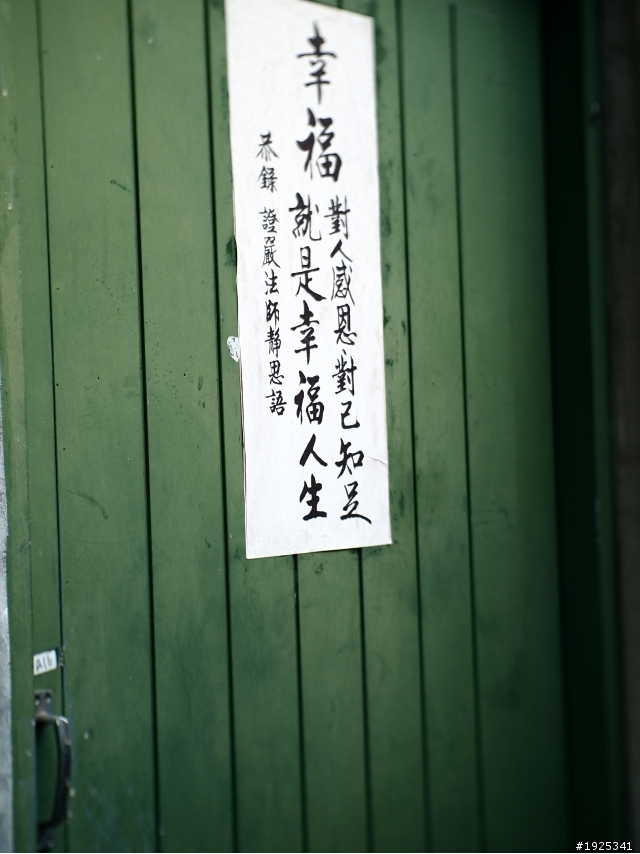 幸福
對人感恩對己知足
就是幸福人生
恭錄 證嚴法師靜思語
A16
#1925341